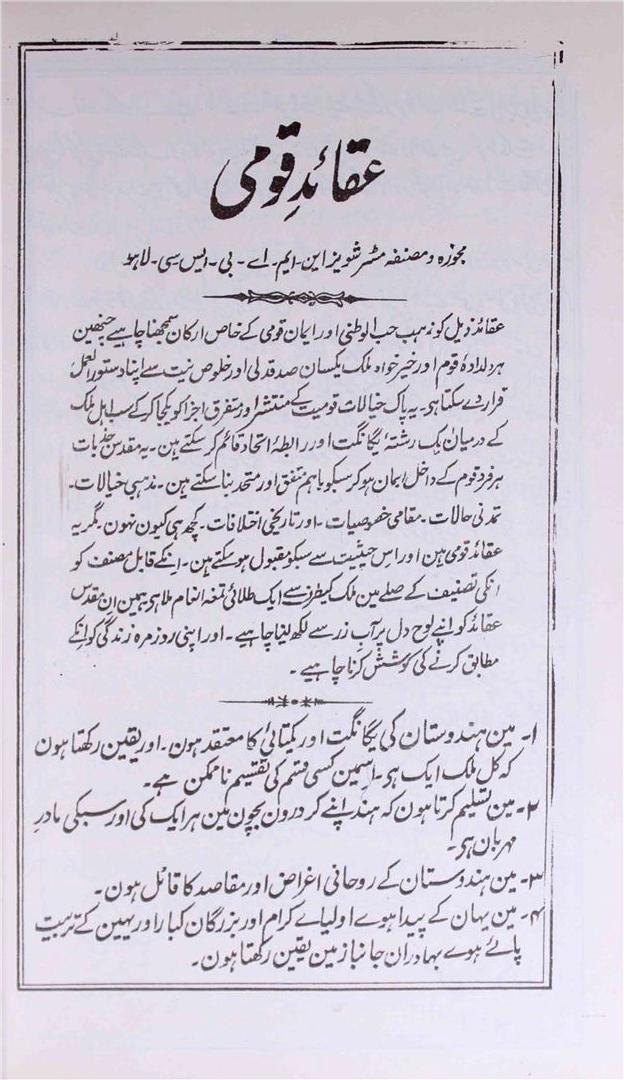 عقائدِ قومی
مجوزہ و مصنفہ مسٹر شویز این - ایم - اے - بی - ایس سی - لاہو
عقائد ذیل کو مذہب حب الوطنی اور ایمان قومی کے خاص ارکان سمجھنا چاہیے جنھین
ہر دلدادۂ قوم اور خیر خواہ ملک یکسان صدقدلی اور خلوص نیت سے اپنا دستور العمل
قرار دے سکتا ہی ۔ یہ پاک خیالات قومیت کے منتشر اور متفرق اجزا کو یکجا کر کے سب اہل ملک
کے درمیان یک رشتۂ یگانگت اور رابطۂ اتحاد قائم کر سکتے ہین ۔ یہ مقدس جذبات
ہر فرد قوم کے داخل ایمان ہو کر سبکو باہم متفق اور متحد بنا سکتے ہین ۔ مذہبی خیالات ۔
تمدنی حالات ۔ مقامی خصوصیات ۔ اور تاریخی اختلافات ۔ کچھ ہی کیون نہون ۔ مگر یہ
عقائد قومی ہین اور اس حیثیت سے سبکو مقبول ہو سکتے ہین ۔ انکے قابل مصنف کو
انکی تصنیف کے صلے مین ملک کیطرف سے ایک طلائی تمغہ انعام ملا ہی ہمین ان مقدس
عقائد کو اپنے لوح دل پر آب زر سے لکھ لینا چاہیے ۔ اور اپنی روز مرہ زندگی کو انکے
مطابق کرنے کی کوشش کرنا چاہیے ۔
۱۔ مین ہندوستان کی یگانگت اور یکتائی کا معتقد ہون ۔ اور یقین رکھتا ہون
کہ کل ملک ایک ہی ۔ اسمین کسی قسم کی تقسیم ناممکن ہے ۔
۲۔ مین تسلیم کرتا ہون کہ ہند اپنے کرورون بچون مین ہر ایک کی اور سبکی مادرِ
مہربان ہی ۔
۳۔ مین ہندوستان کے روحانی اغراض اور مقاصد کا قائل ہون ۔
۴۔ مین یہان کے پیدا ہوے اولیاے کرام اور بزرگان کبار اور یہین کے تربیت
پائے ہوے بہادران جانباز مین یقین رکھتا ہون ۔